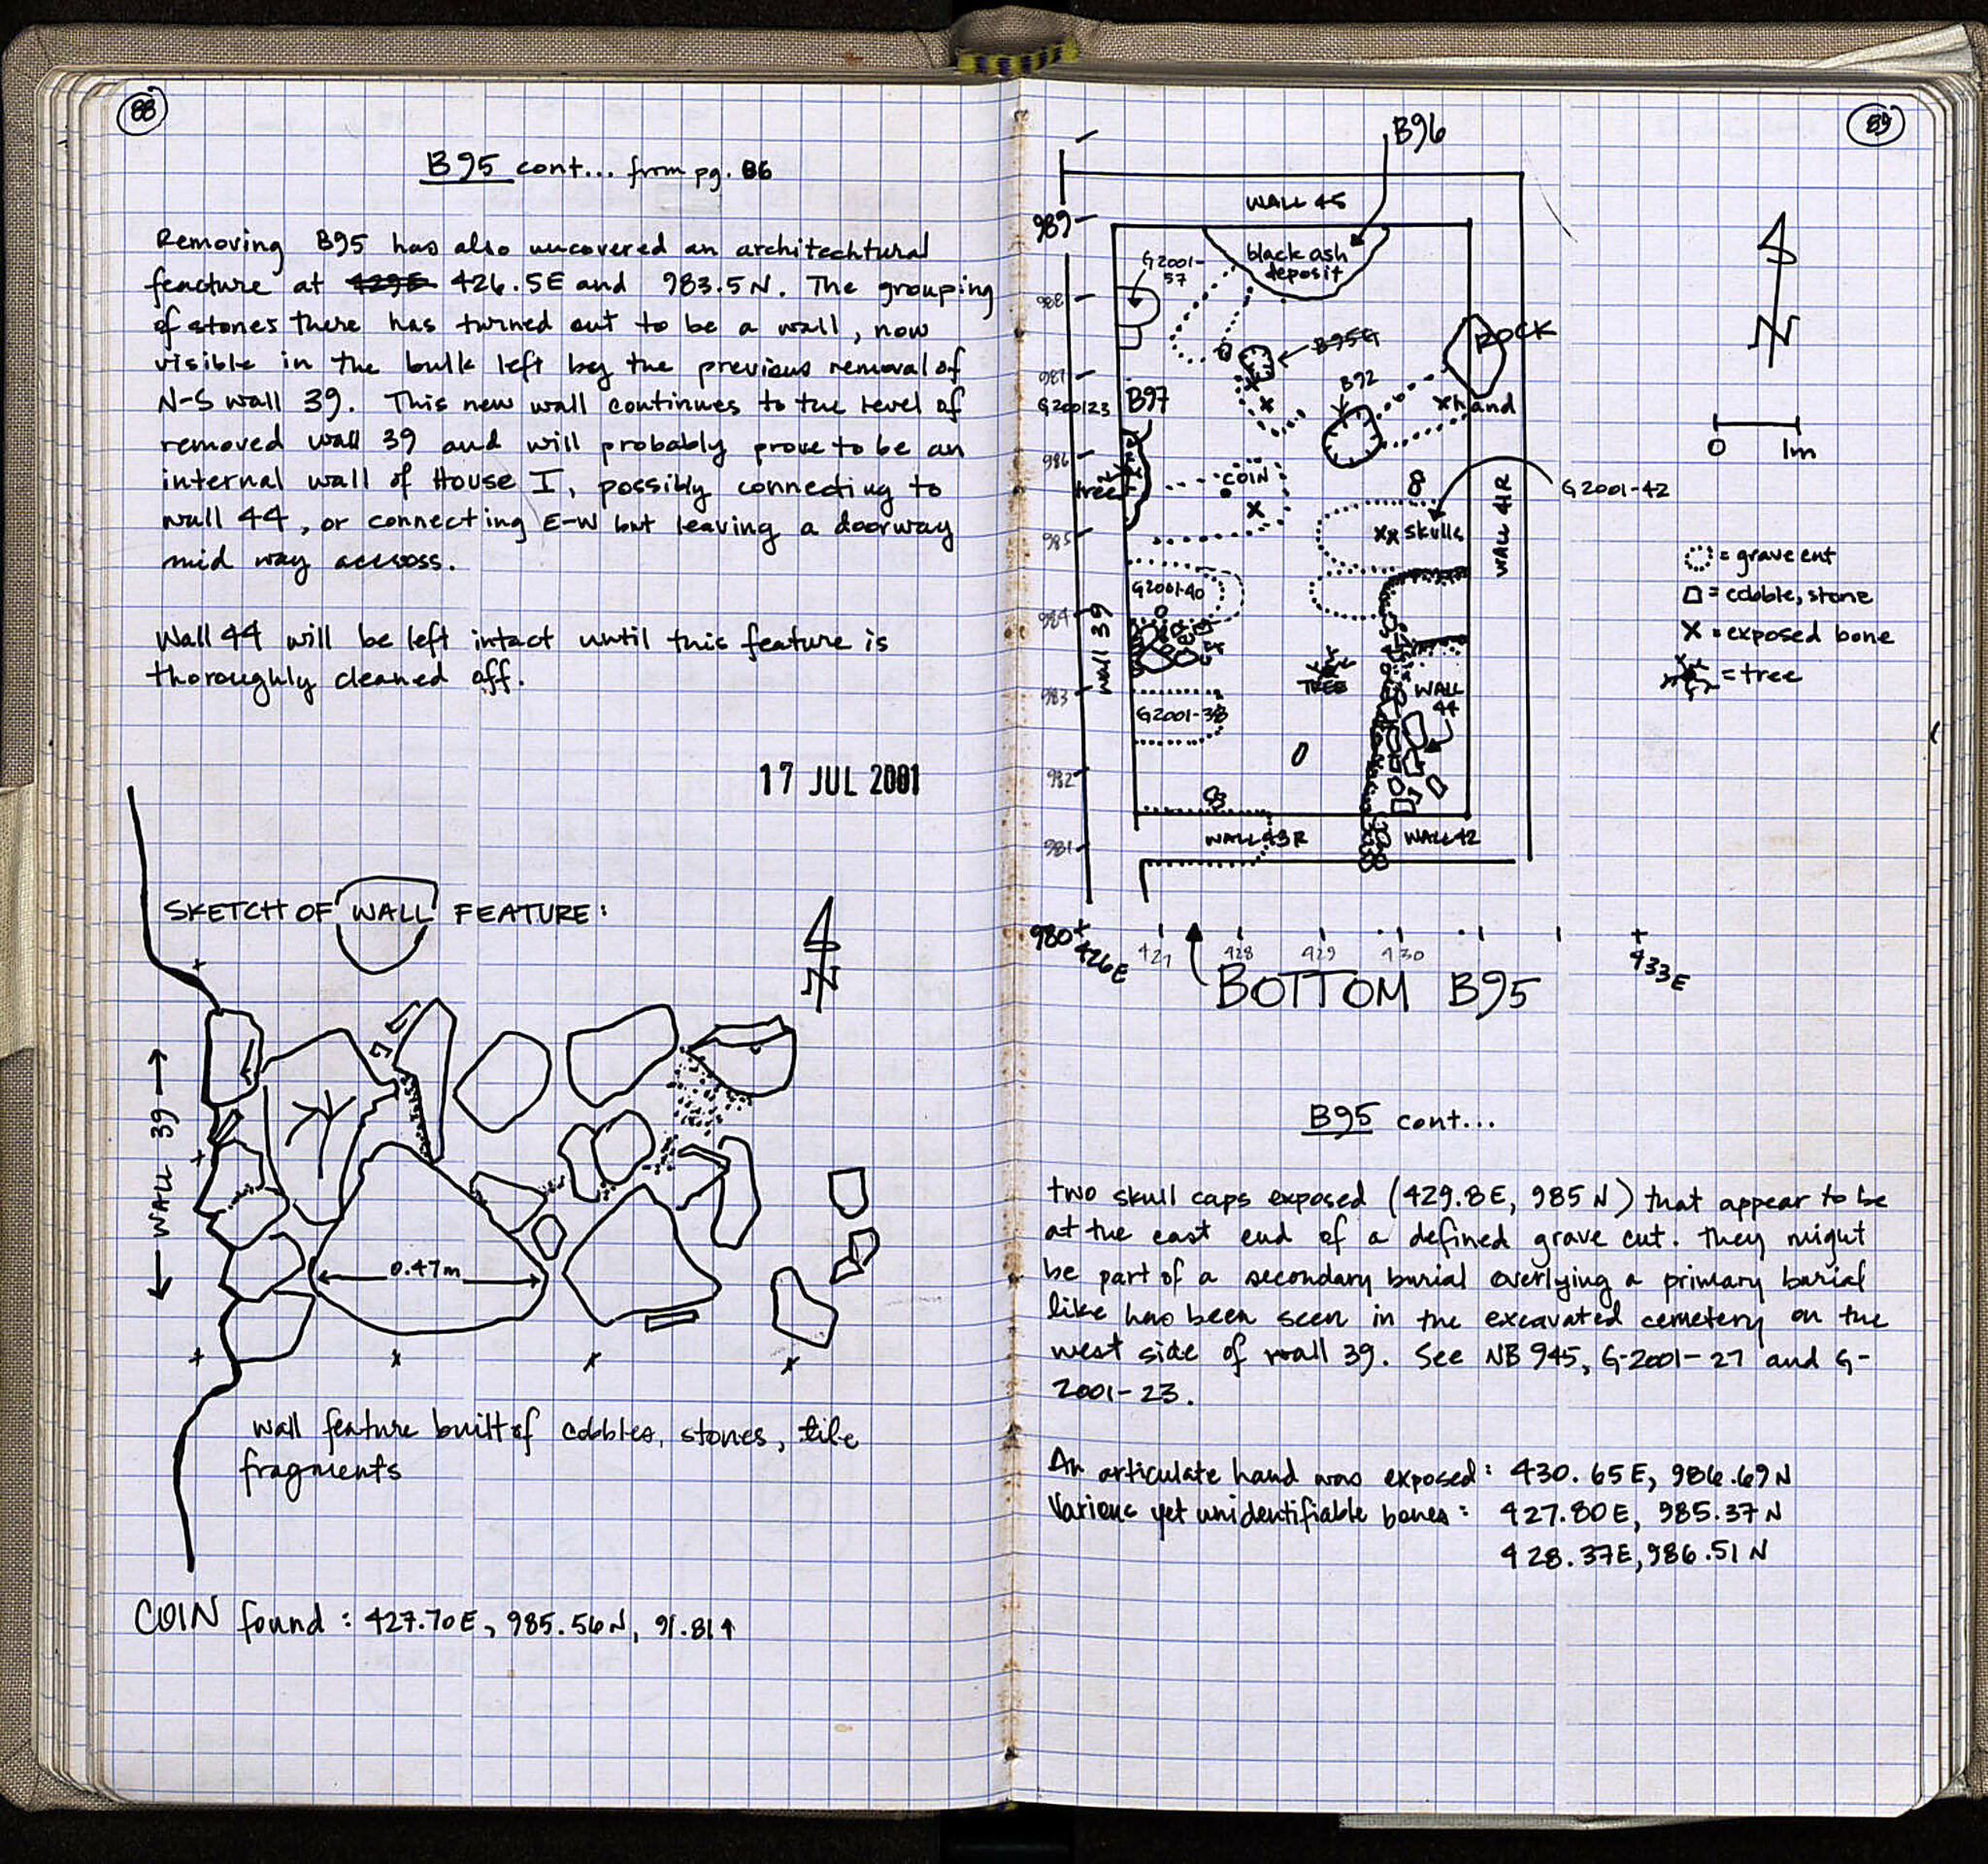 88
B95 cont... from pg. 86
Removing B95 has also uncovered an architechtural
feature at 429E 426.5E and 983.5N. The grouping
of stones there has turned out to be a wall, now
visible in the bulk left by the previous removal of
N-S wall 39. This new wall continues to the level of
removed wall 39 and will probably prove to be an
internal wall of House I, possibly connecting to
wall 44, or connecting E-W but leaving a doorway
mid way accross.
Wall 44 will be left intact until this feature is
thoroughly cleaned off.
17 JUL 2001
SKETCH OF WALL FEATURE:
N
← WALL 39 →
0.47m
wall feature built of cobbles, stones, tile
fragments
COIN found: 427.70E, 985.56N, 91.81↑
89
B96
WALL 45
989
black ash
deposit
G2001-
57
988
ROCK
B95G
987
B92
G200123
B97
hand
N
0 1m
986
tree
COIN
G2001-42
WALL 4R
985
skulls
= grave cut
= cobble, stone
X = exposed bone
= tree
G2001-40
984
Wall 39
TREE
983
WALL
44
G2001-38
982
WALL 43R
WALL 42
981
980
426E
427
428
429
430
433E
BOTTOM B95
B95 cont...
two skull caps exposed (429.8E, 985N) that appear to be
at the east end of a defined grave cut. They might
be part of a secondary burial overlying a primary burial
like has been seen in the excavated cemetery on the
west side of wall 39. See NB 945, G-2001-27 and G-
2001-23.
An articulate hand was exposed: 430.65E, 986.69N
Various yet unidentifiable bones: 427.80E, 985.37N
428.37E, 986.51N